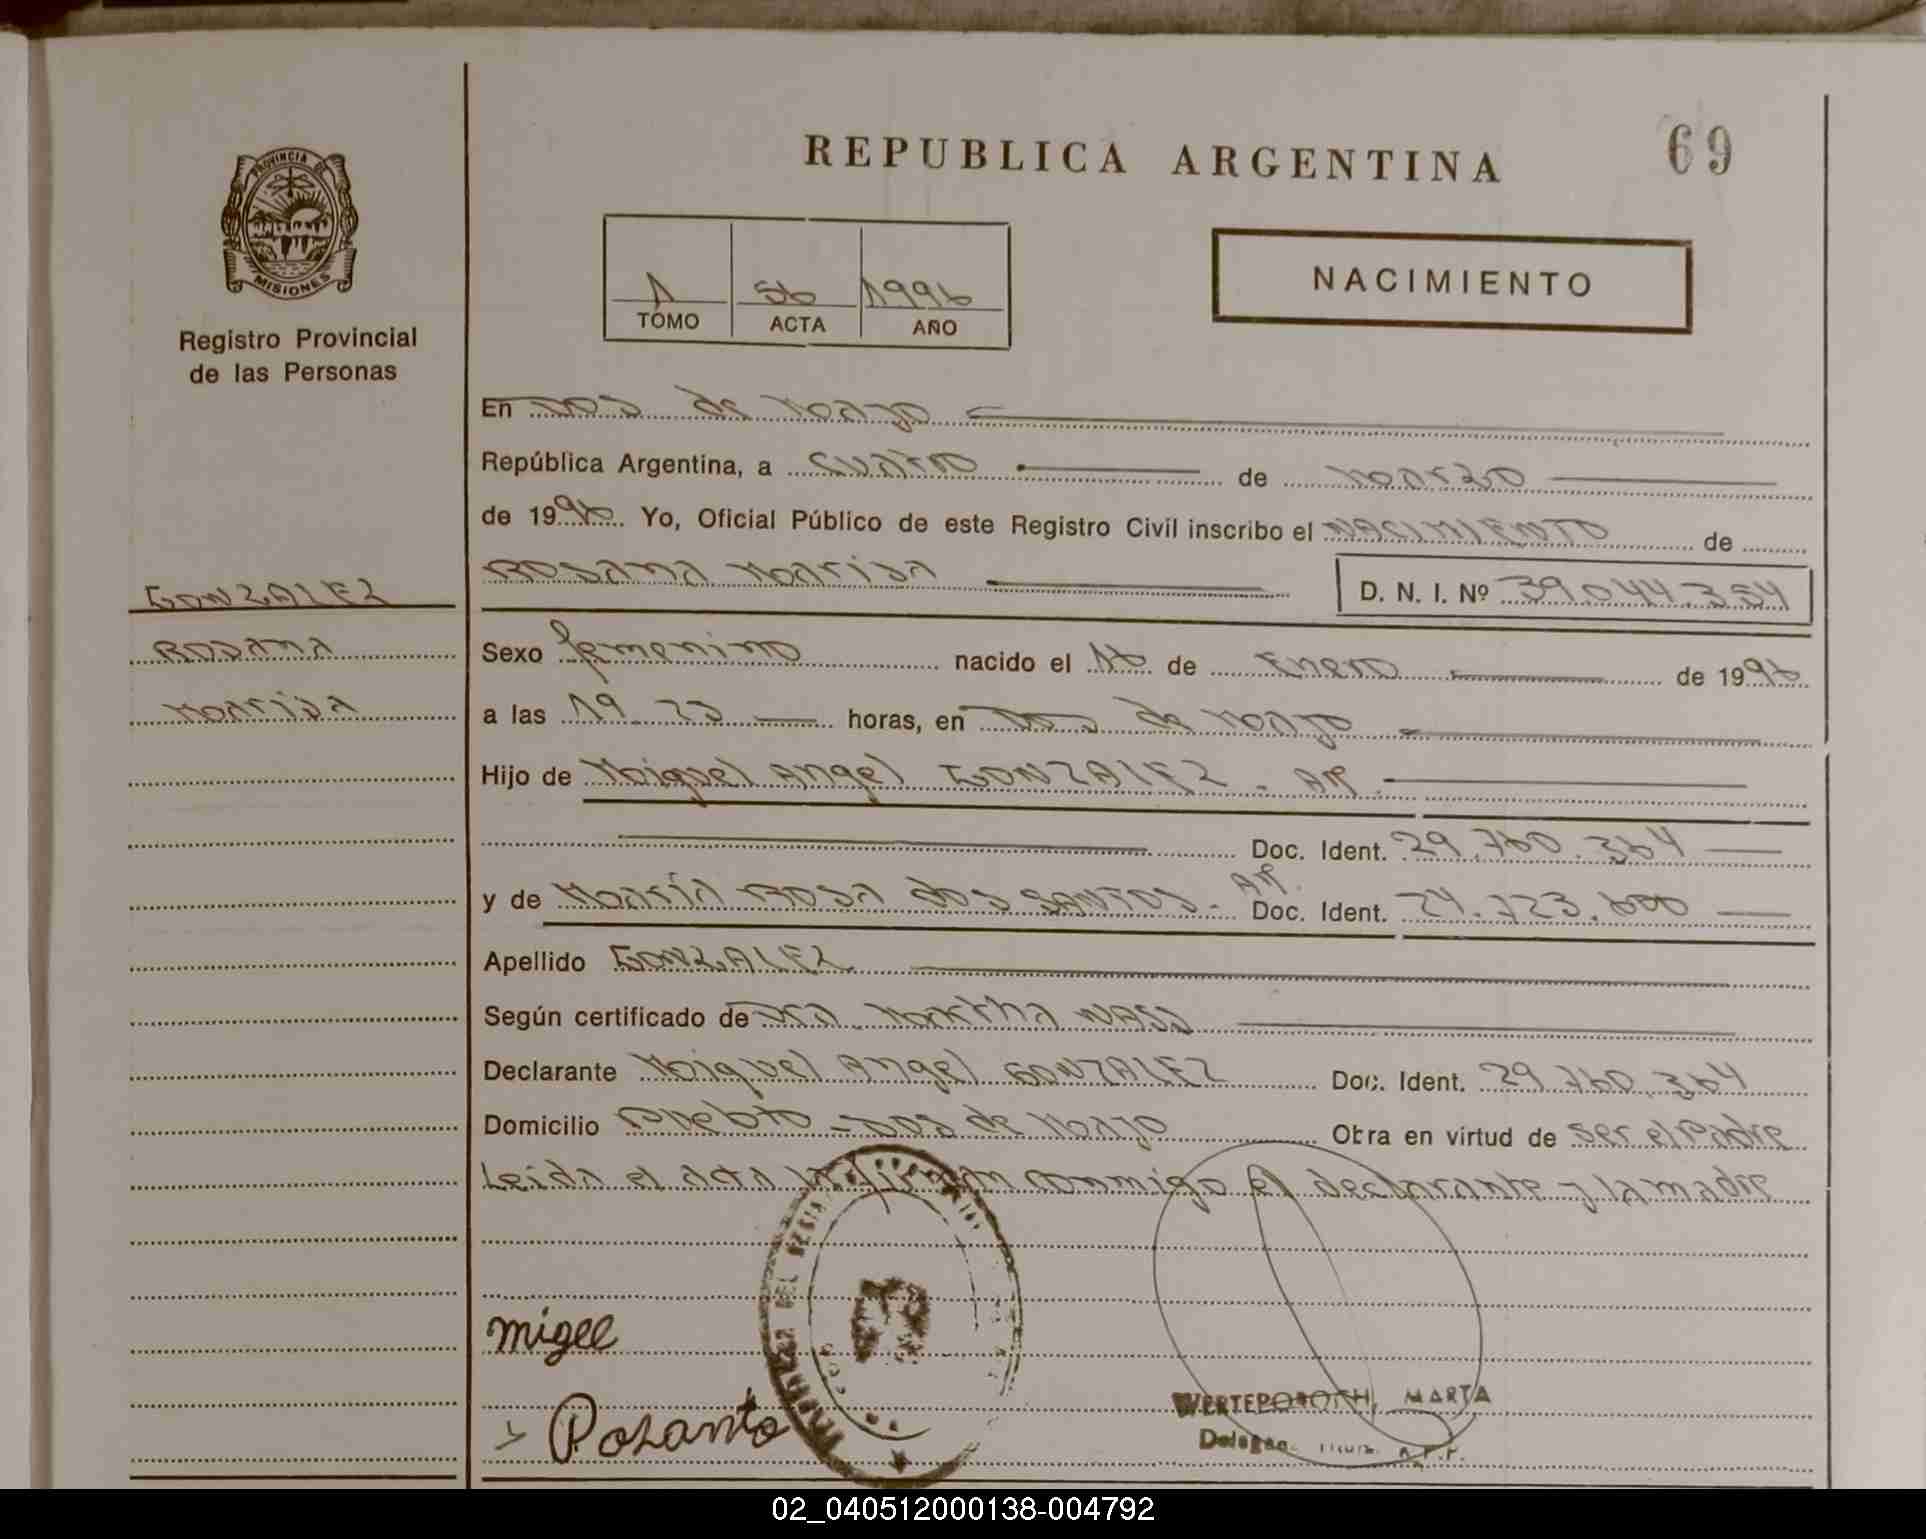 REPUBLICA ARGENTINA
69
PROVINCIA DE
MISIONES
Registro Provincial
de las Personas
1 56 1996
TOMO ACTA AÑO
NACIMIENTO
En Dos de Mayo
República Argentina, a cuatro de Marzo
de 1996. Yo, Oficial Público de este Registro Civil inscribo el NACIMIENTO de
Rosana Marisa D. N. I. Nº 39.044.354
GONZALEZ
Rosana
Marisa
Sexo femenino nacido el 16 de Enero de 1996
a las 19 23 horas, en Dos de Mayo
Hijo de Miguel Angel GONZALEZ - AR.
Doc. Ident. 29.760.364
y de María Rosa dos SANTOS - AR. Doc. Ident. 24.723.600
Apellido GONZALEZ
Según certificado de Dra. Martha
Declarante Miguel Angel GONZALEZ Doc. Ident. 29.760.364
Domicilio Pueblo - Dos de Mayo Obra en virtud de ser el Padre
Leida el acta la firman conmigo el declarante y la madre
migel
Rosanto
MARTA
02_040512000138-004792